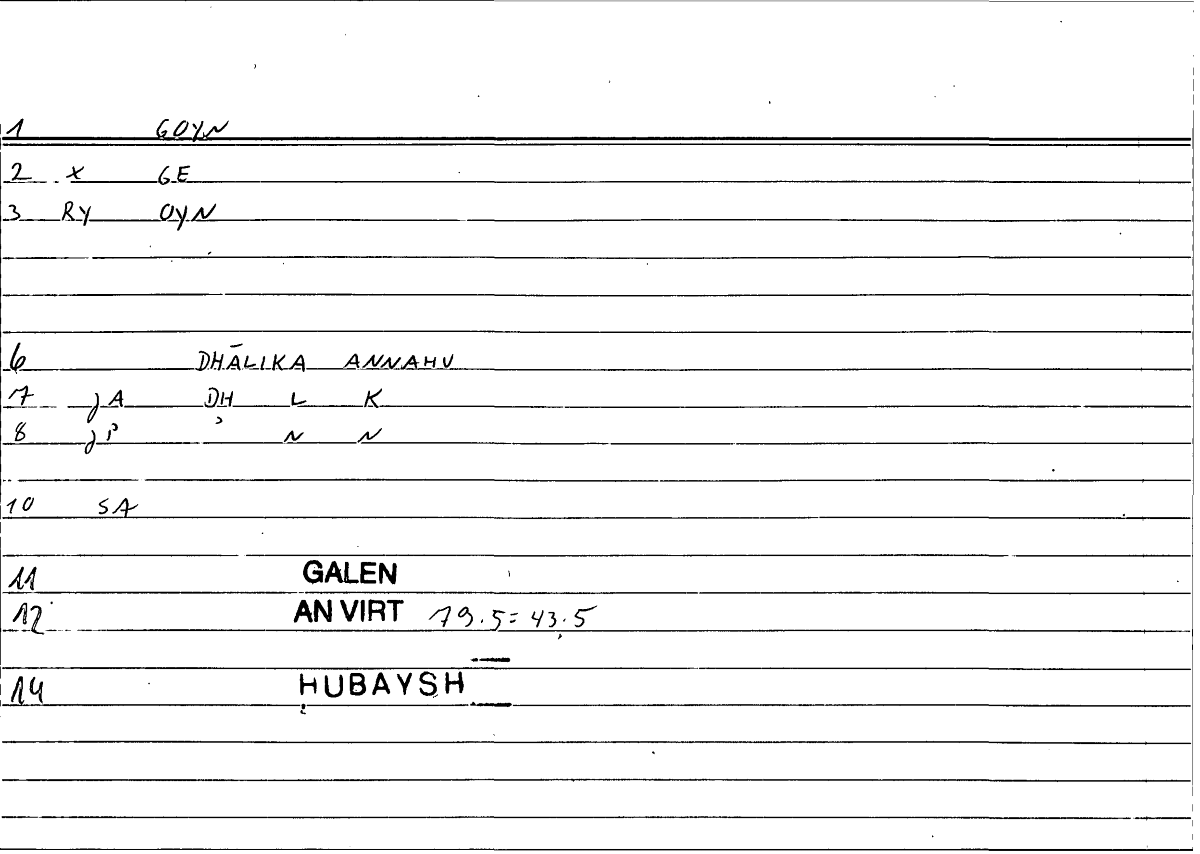 1 GOYN
2 X GE
3 RY OYN
6 DHĀLIKA ANNAHU
7 jA DH L K
8 jP N N
10 SA
11 GALEN
12 AN VIRT 79.5=43.5
14 ḤUBAYSH